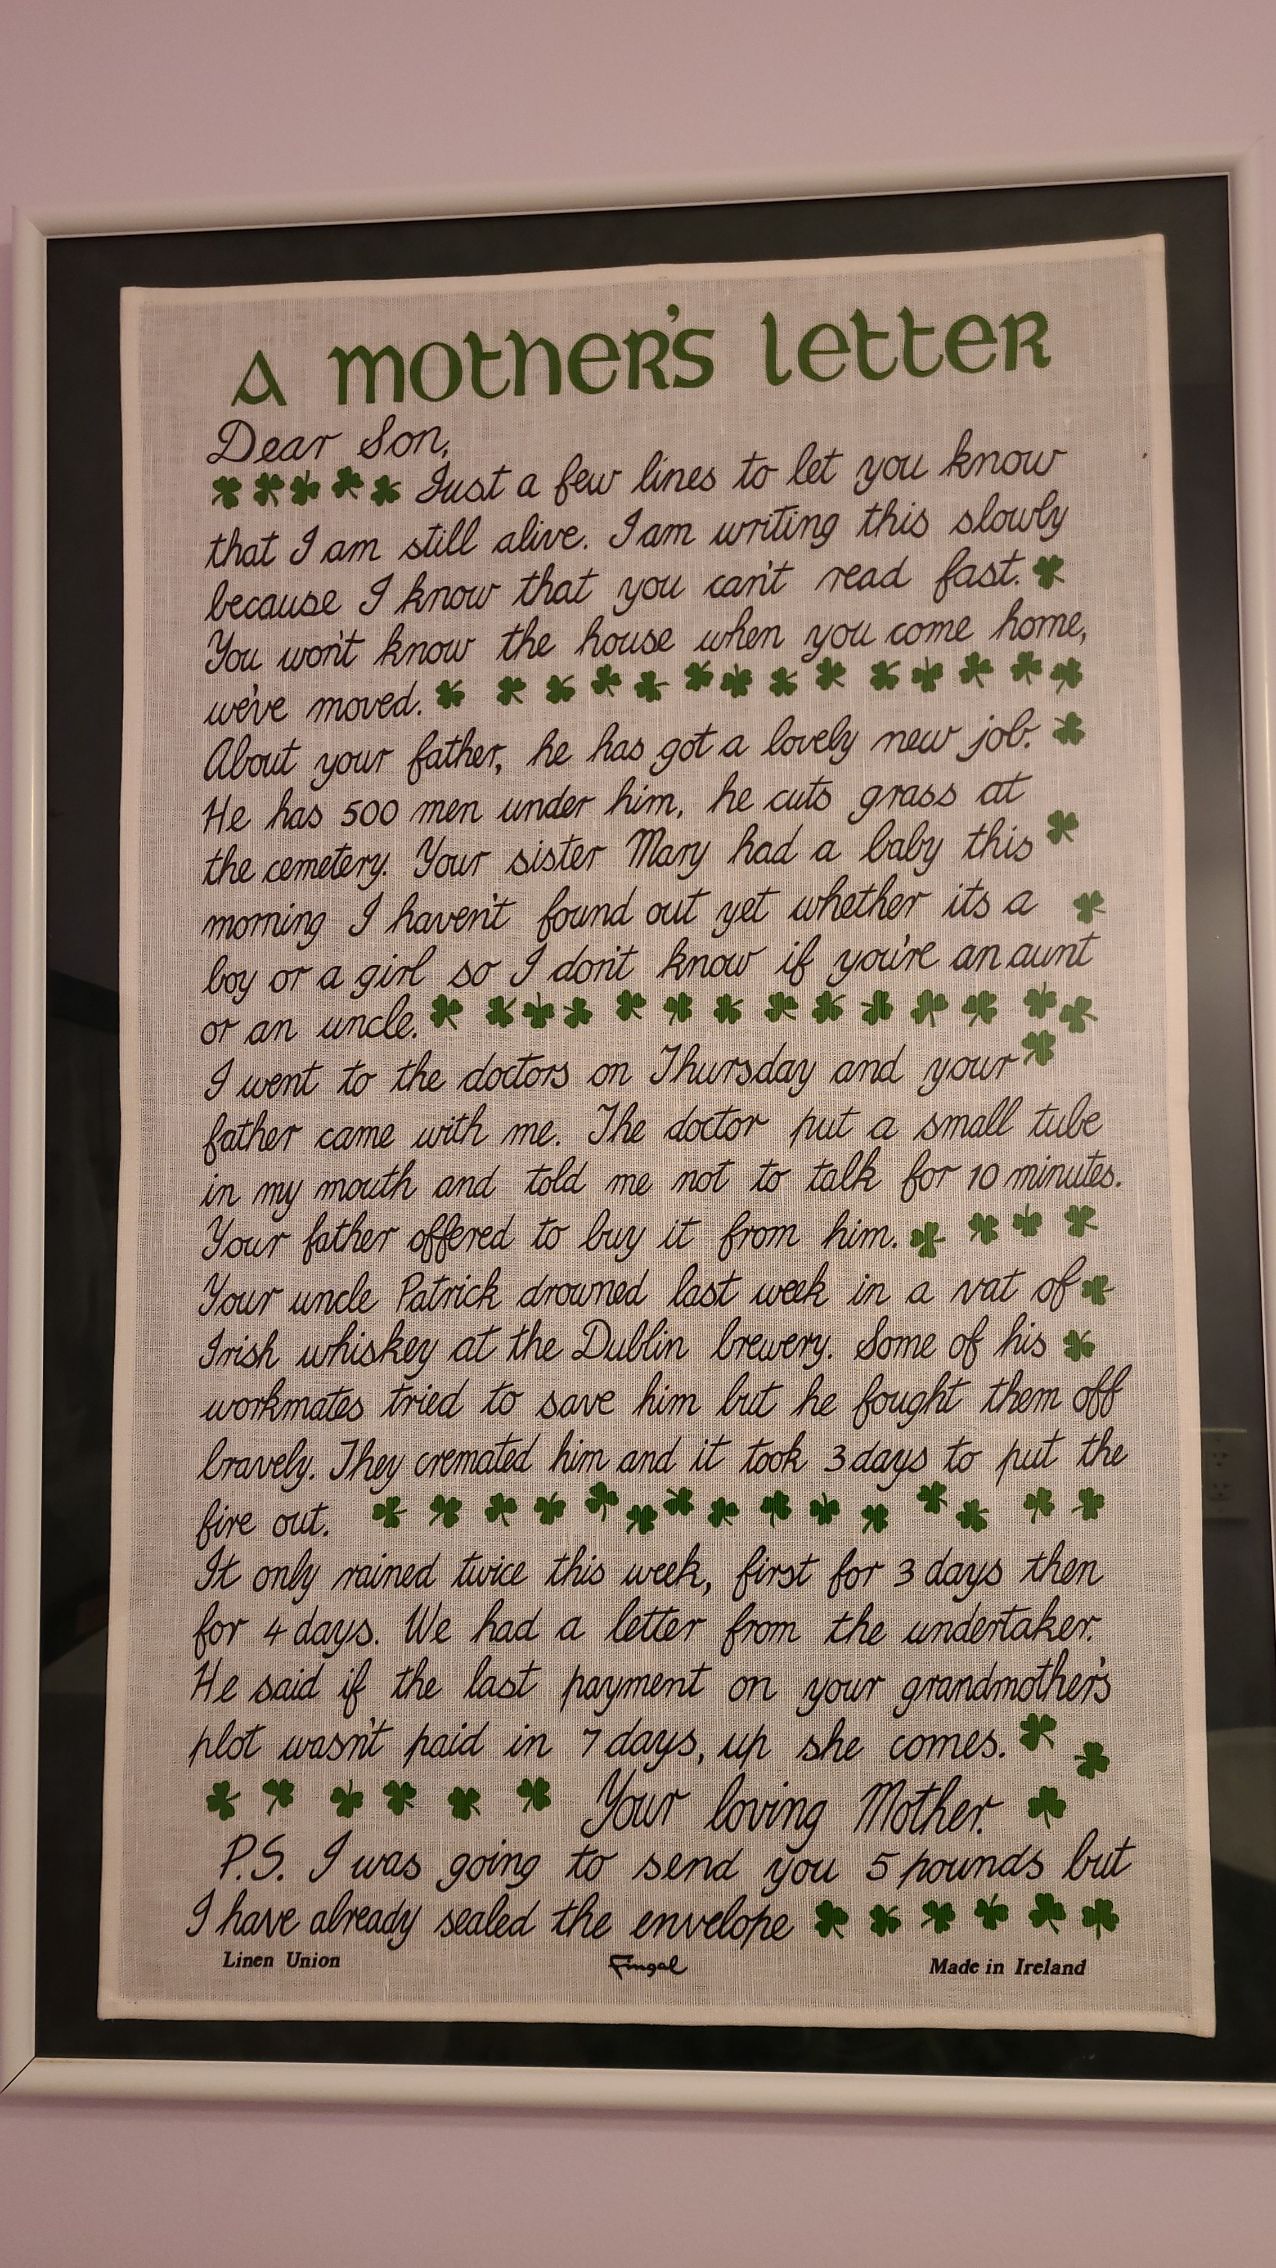 A mother's letter
Dear Son,
Just a few lines to let you know
that I am still alive. I am writing this slowly
because I know that you can't read fast.
You won't know the house when you come home,
we've moved.
About your father, he has got a lovely new job.
He has 500 men under him, he cuts grass at
the cemetery. Your sister Mary had a baby this
morning I haven't found out yet whether its a
boy or a girl so I don't know if you're an aunt
or an uncle.
I went to the doctors on Thursday and your
father came with me. The doctor put a small tube
in my mouth and told me not to talk for 10 minutes.
Your father offered to buy it from him.
Your uncle Patrick drowned last week in a vat of
Irish whiskey at the Dublin brewery. Some of his
workmates tried to save him but he fought them off
bravely. They cremated him and it took 3 days to put the
fire out.
It only rained twice this week, first for 3 days then
for 4 days. We had a letter from the undertaker.
He said if the last payment on your grandmother's
plot wasn't paid in 7 days, up she comes.
Your loving Mother.
P.S. I was going to send you 5 pounds but
I have already sealed the envelope
Linen Union Fingal Made in Ireland